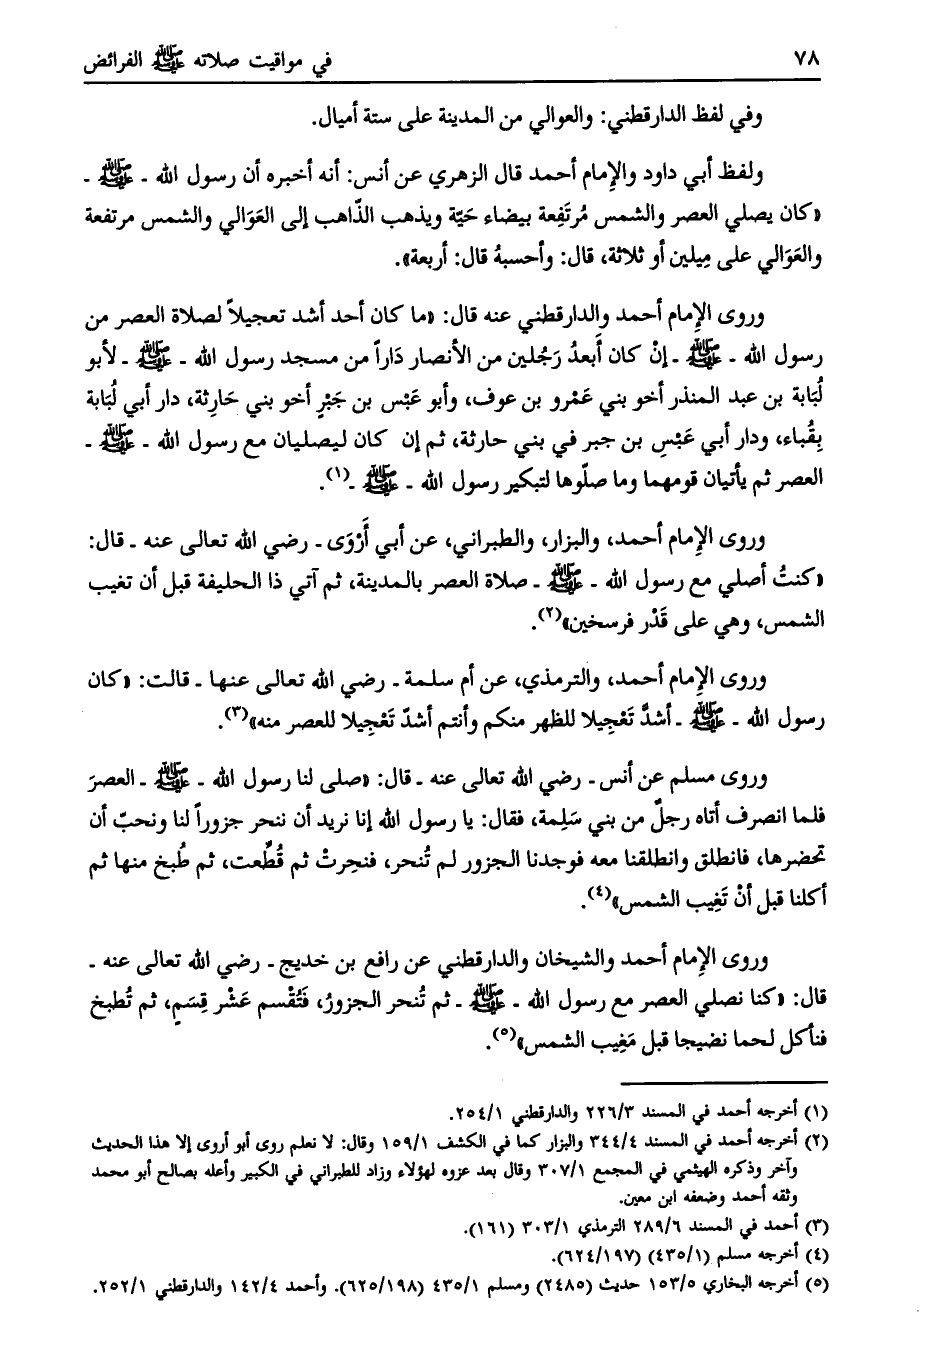 ٧٨ في مواقيت صلاته ﷺ الفرائض
وفي لفظ الدارقطني: والعوالي من المدينة على ستة أميال.
ولفظ أبي داود والإمام أحمد قال الزهري عن أنس: أنه أخبره أن رسول الله ـ ﷺ ـ
«كان يصلي العصر والشمس مُرتَفِعة بيضاء حَيّة ويذهب الذّاهب إلى العَوَالي والشمس مرتفعة
والعَوَالي على مِيلين أو ثلاثة، قال: وأحسبهُ قال: أربعة».
وروى الإمام أحمد والدارقطني عنه قال: «ما كان أحد أشد تعجيلاً لصلاة العصر من
رسول الله ـ ﷺ ـ إنْ كان أَبعدُ رَجُلين من الأنصار دَاراً من مسجد رسول الله ـ ﷺ ـ لأبو
لُبَابة بن عبد المنذر أخو بني عَمْرو بن عوف، وأبو عَبْس بن جَبْرٍ أخو بني حَارِثة، دار أبي لُبَابة
بِقُباء، ودار أبي عَبْسِ بن جبر في بني حارثة، ثم إن كان ليصليان مع رسول الله ـ ﷺ ـ
العصر ثم يأتيان قومهما وما صلّوها لتبكير رسول الله ـ ﷺ ـ(١).
وروى الإمام أحمد، والبزار، والطبراني، عن أبي أَرْوَى ـ رضي الله تعالى عنه ـ قال:
«كنتُ أصلي مع رسول الله ـ ﷺ ـ صلاة العصر بالمدينة، ثم آتي ذا الحليفة قبل أن تغيب
الشمس، وهي على قَدْر فرسخين»(٢).
وروى الإمام أحمد، والترمذي، عن أم سلمة ـ رضي الله تعالى عنها ـ قالت: «كان
رسول الله ـ ﷺ ـ أشدَّ تَعْجِيلا للظهر منكم وأنتم أشدّ تَعْجِيلا للعصر منه»(٣).
وروى مسلم عن أنس ـ رضي الله تعالى عنه ـ قال: «صلى لنا رسول الله ـ ﷺ ـ العصرَ
فلما انصرف أتاه رجلٌ من بني سَلِمة، فقال: يا رسول الله إنا نريد أن ننحر جزوراً لنا ونحبّ أن
تحضرها، فانطلق وانطلقنا معه فوجدنا الجزور لم تُنحر، فنحِرتْ ثم قُطِّعت، ثم طُبخ منها ثم
أكلنا قبل أنْ تَغِيب الشمس»(٤).
وروى الإمام أحمد والشيخان والدارقطني عن رافع بن خديج ـ رضي الله تعالى عنه ـ
قال: «كنا نصلي العصر مع رسول الله ـ ﷺ ـ ثم تُنحر الجزورُ، فَتُقْسم عَشْر قِسَمٍ، ثم تُطبخ
فنأكل لحما نضيجا قبل مَغِيب الشمس»(٥).
(١) أخرجه أحمد في المسند ٢٢٦/٣ والدارقطني ٢٥٤/١.
(٢) أخرجه أحمد في المسند ٣٤٤/٤ والبزار كما في الكشف ١٥٩/١ وقال: لا نعلم روى أبو أروى إلا هذا الحديث
وآخر وذكره الهيثمي في المجمع ٣٠٧/١ وقال بعد عزوه لهؤلاء وزاد للطبراني في الكبير وأعله بصالح أبو محمد
وثقه أحمد وضعفه ابن معين.
(٣) أحمد في المسند ٢٨٩/٦ الترمذي ٣٠٣/١ (١٦١).
(٤) أخرجه مسلم (٤٣٥/١) (٦٢٤/١٩٧).
(٥) أخرجه البخاري ١٥٣/٥ حديث (٢٤٨٥) ومسلم ٤٣٥/١ (٦٢٥/١٩٨). وأحمد ١٤٢/٤ والدارقطني ٢٥٢/١.